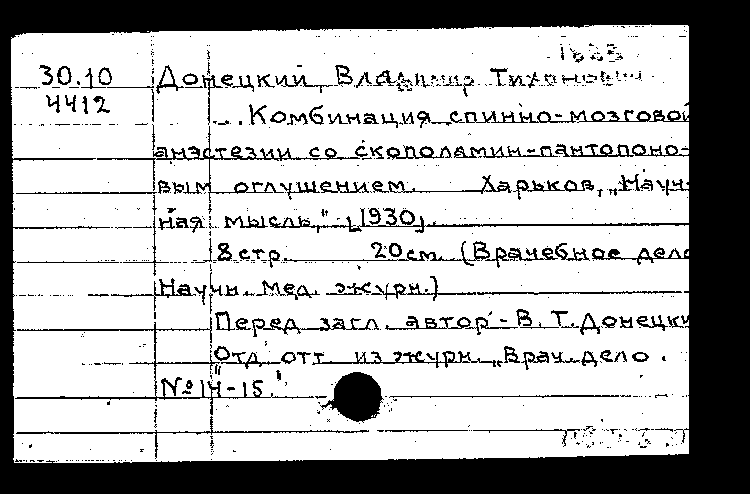 1883
30.10 Донецкий, Владимир Тихонович
4412
... Комбинация спинно-мозговой
анэстезии со скополамин-пантопоно-
вым оглушением. Харьков, „Науч-
ная мысль," [1930].
8 стр. 20 см. (Врачебное дело
Научн. мед. журн.)
Перед загл. автор - В. Т. Донецки
Отд. отт. из журн. „Врач. дело.
№ 14-15."